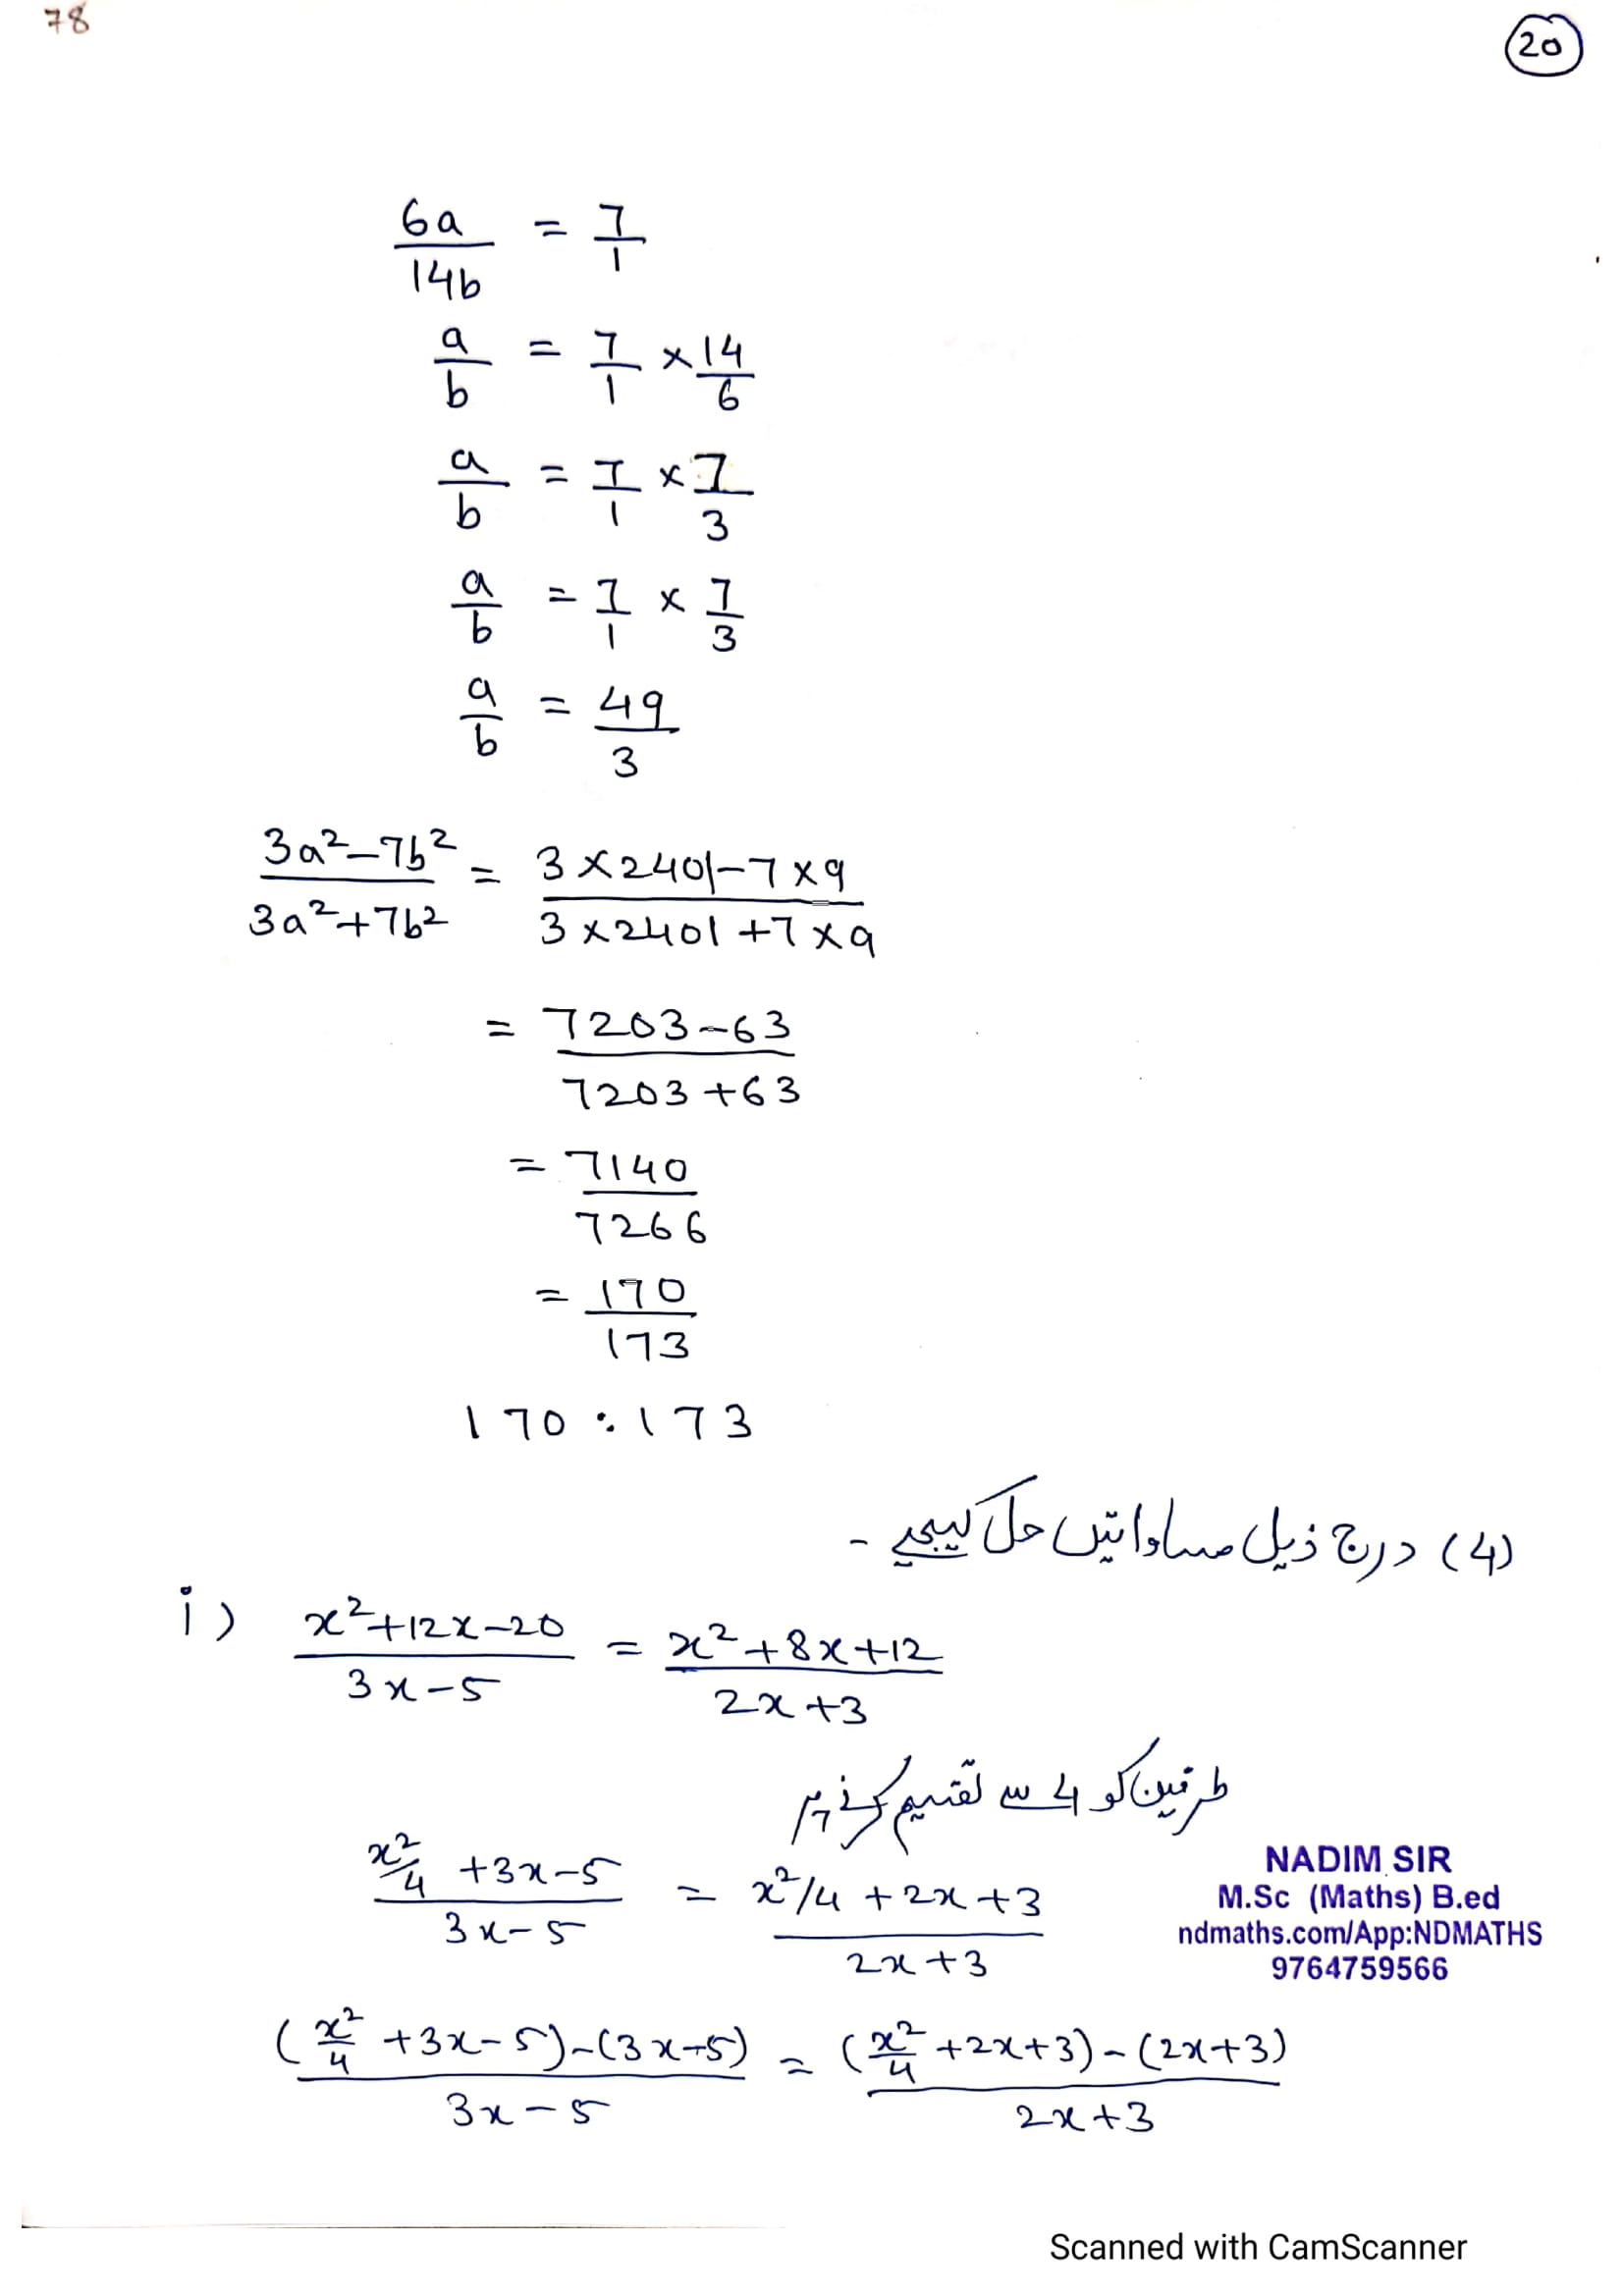 78
20
6a/14b = 7/1
a/b = 7/1 × 14/6
a/b = 7/1 × 7/3
a/b = 7/1 × 7/3
a/b = 49/3
3a²-7b² / 3a²+7b² = 3×2401-7×9 / 3×2401+7×9
= 7203-63 / 7203+63
= 7140/7266
= 170/173
170 : 173
(4) درج ذیل مساواتیں حل کیجیے -
i) x²+12x-20 / 3x-5 = x²+8x+12 / 2x+3
طرفین کو 4 سے تقسیم کرنے پر
x²/4 +3x-5 / 3x-5 = x²/4 +2x+3 / 2x+3
(x²/4 +3x-5)-(3x-5) / 3x-5 = (x²/4 +2x+3)-(2x+3) / 2x+3
NADIM SIR
M.Sc (Maths) B.ed
ndmaths.com/App:NDMATHS
9764759566
Scanned with CamScanner